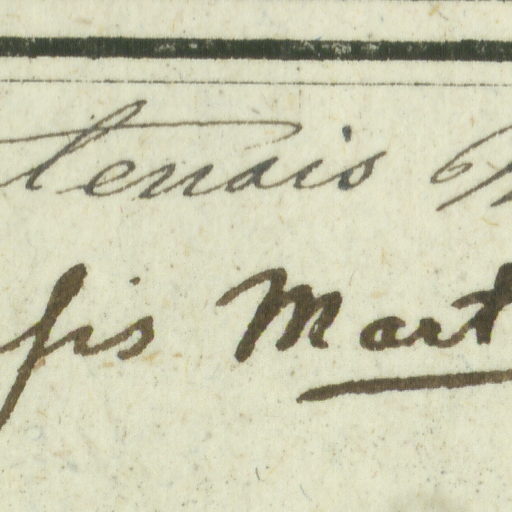 tenais
fis Mart